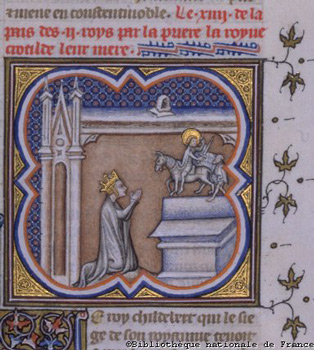 amene en constentinoble. Le .xiiij. de la
pais des .ij. roys par la priere la royne
crotilde leur mere.
e roy childebert qui le sie
ge de son royaume tenoit
©Bibliothèque nationale de France